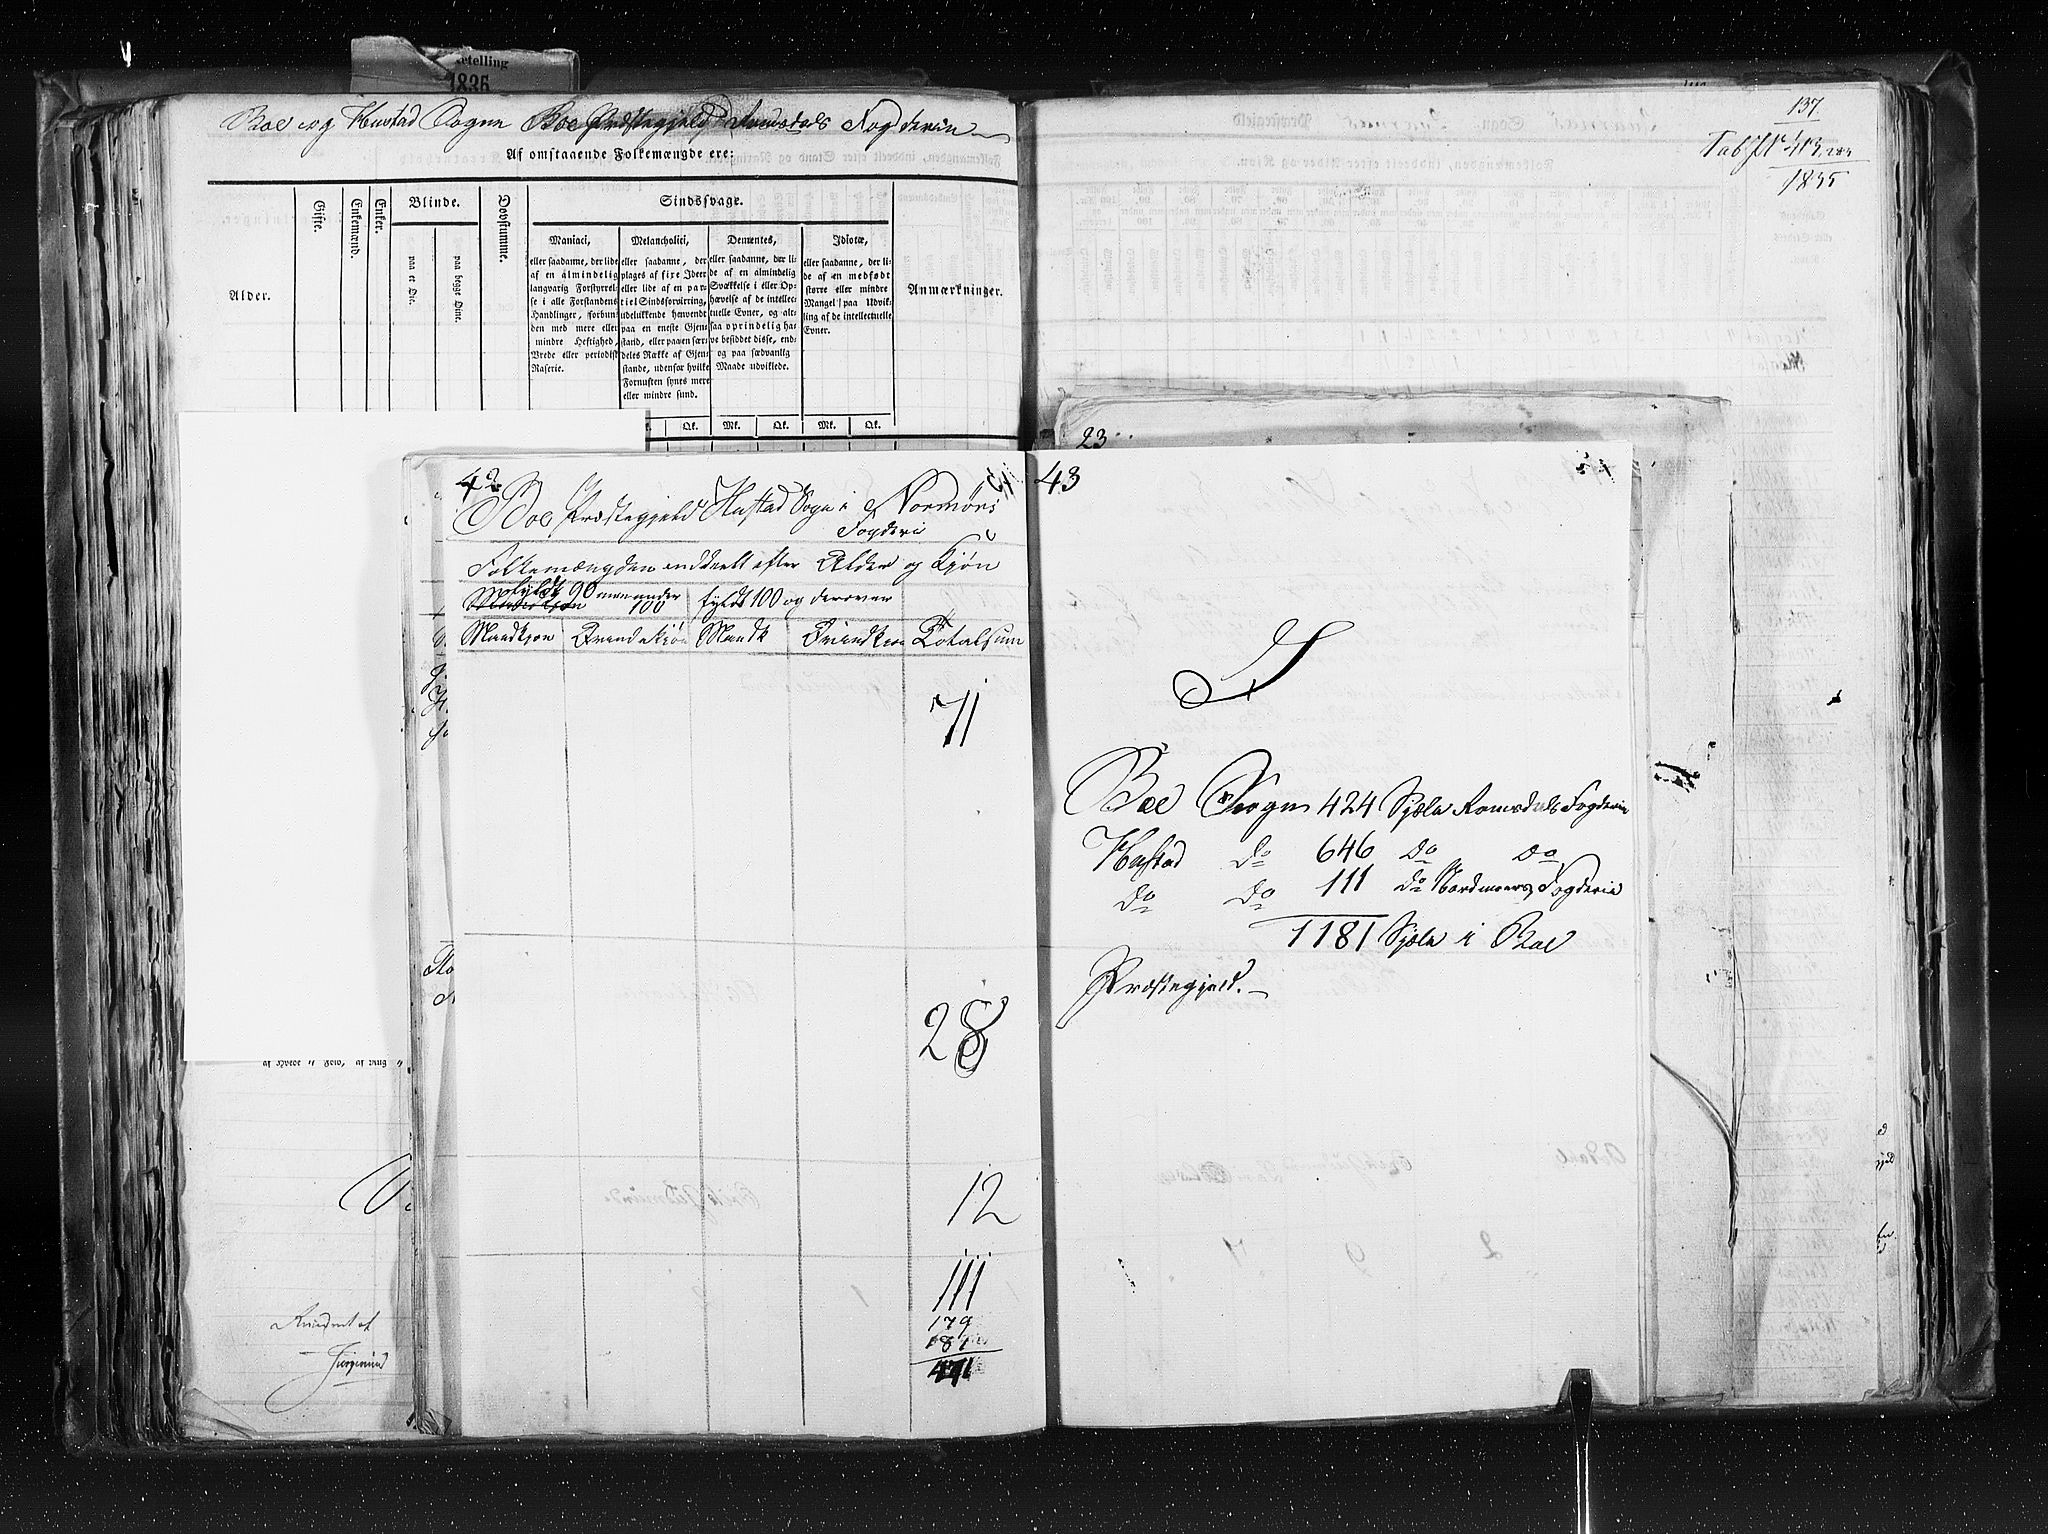 etelling
1835
Boe og Hustad Sogne Boe Præstegjeld Romsdals Fogderie
Af omstaaende Folkemængde ere:
Alder.
Gifte.
Enkemænd.
Enker.
Blinde.
paa et Øie.
paa begge Øine.
Døvstumme.
Sindssvage.
Maniaci,
eller saadanne, der lide
af en almindelig
langvarig Forstyrrel-
se i alle Forstandens
Handlinger, forbun-
den med mere eller
mindre Heftighed,
Vrede eller periodisk
Raserie.
Melancholici,
eller saadanne, der
plages af fixe Ideer
eller lide af en par-
tiel Sindsforvirring,
udelukkende henvendt
paa en eneste Gjen-
stand, eller paa en sær-
deles Række af Gjen-
stande, udenfor hvilke
Fornuften synes mere
eller mindre sund.
Dementes,
eller saadanne, der li-
de af en almindelig
Svækkelse i eller Op-
hævelse af de intellec-
tuelle Evner, og alt-
saa oprindelig ha-
ve besiddet disse, end-
og paa sædvanlig
Maade udviklede.
Idiotæ,
eller saadanne, der li-
de af en medfødt
større eller mindre
Mangel paa Udvik-
ling af de intellectuelle
Evner.
Anmærkninger.
Qk. Mk. Qk. Mk. Qk.
137.
1835
23
42
Boe Præstegjeld Hustad Sogn i Normørs
Fogderie
Folkemængden inddeelt efter Alder og Kjøn
fyldt 90 men under
100
fyldt 100 og derover
Mandkjøn Qvindekjøn Mandk Qvindkjøn Totalsum
71
28
12
111
179
181
471
43
Boe Sogn 424 Sjæle Romsdals Fogderie
Hustad do 646 do do
do do 111 do Nordmoers Fogderie
1181 Sjæle i Boe
Præstegjeld.